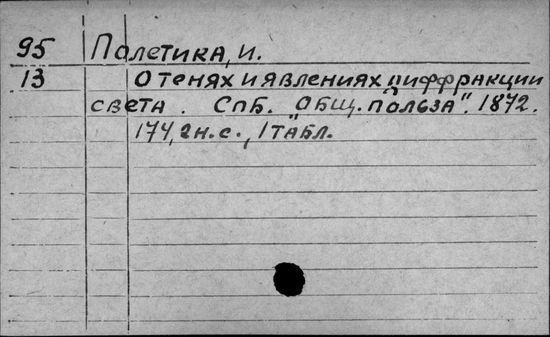 95 Полетика, И.
13 О тенях и явлениях диффракции
света. СПБ. "Общ. польза". 1872.
174, 2н. с., 1 табл.